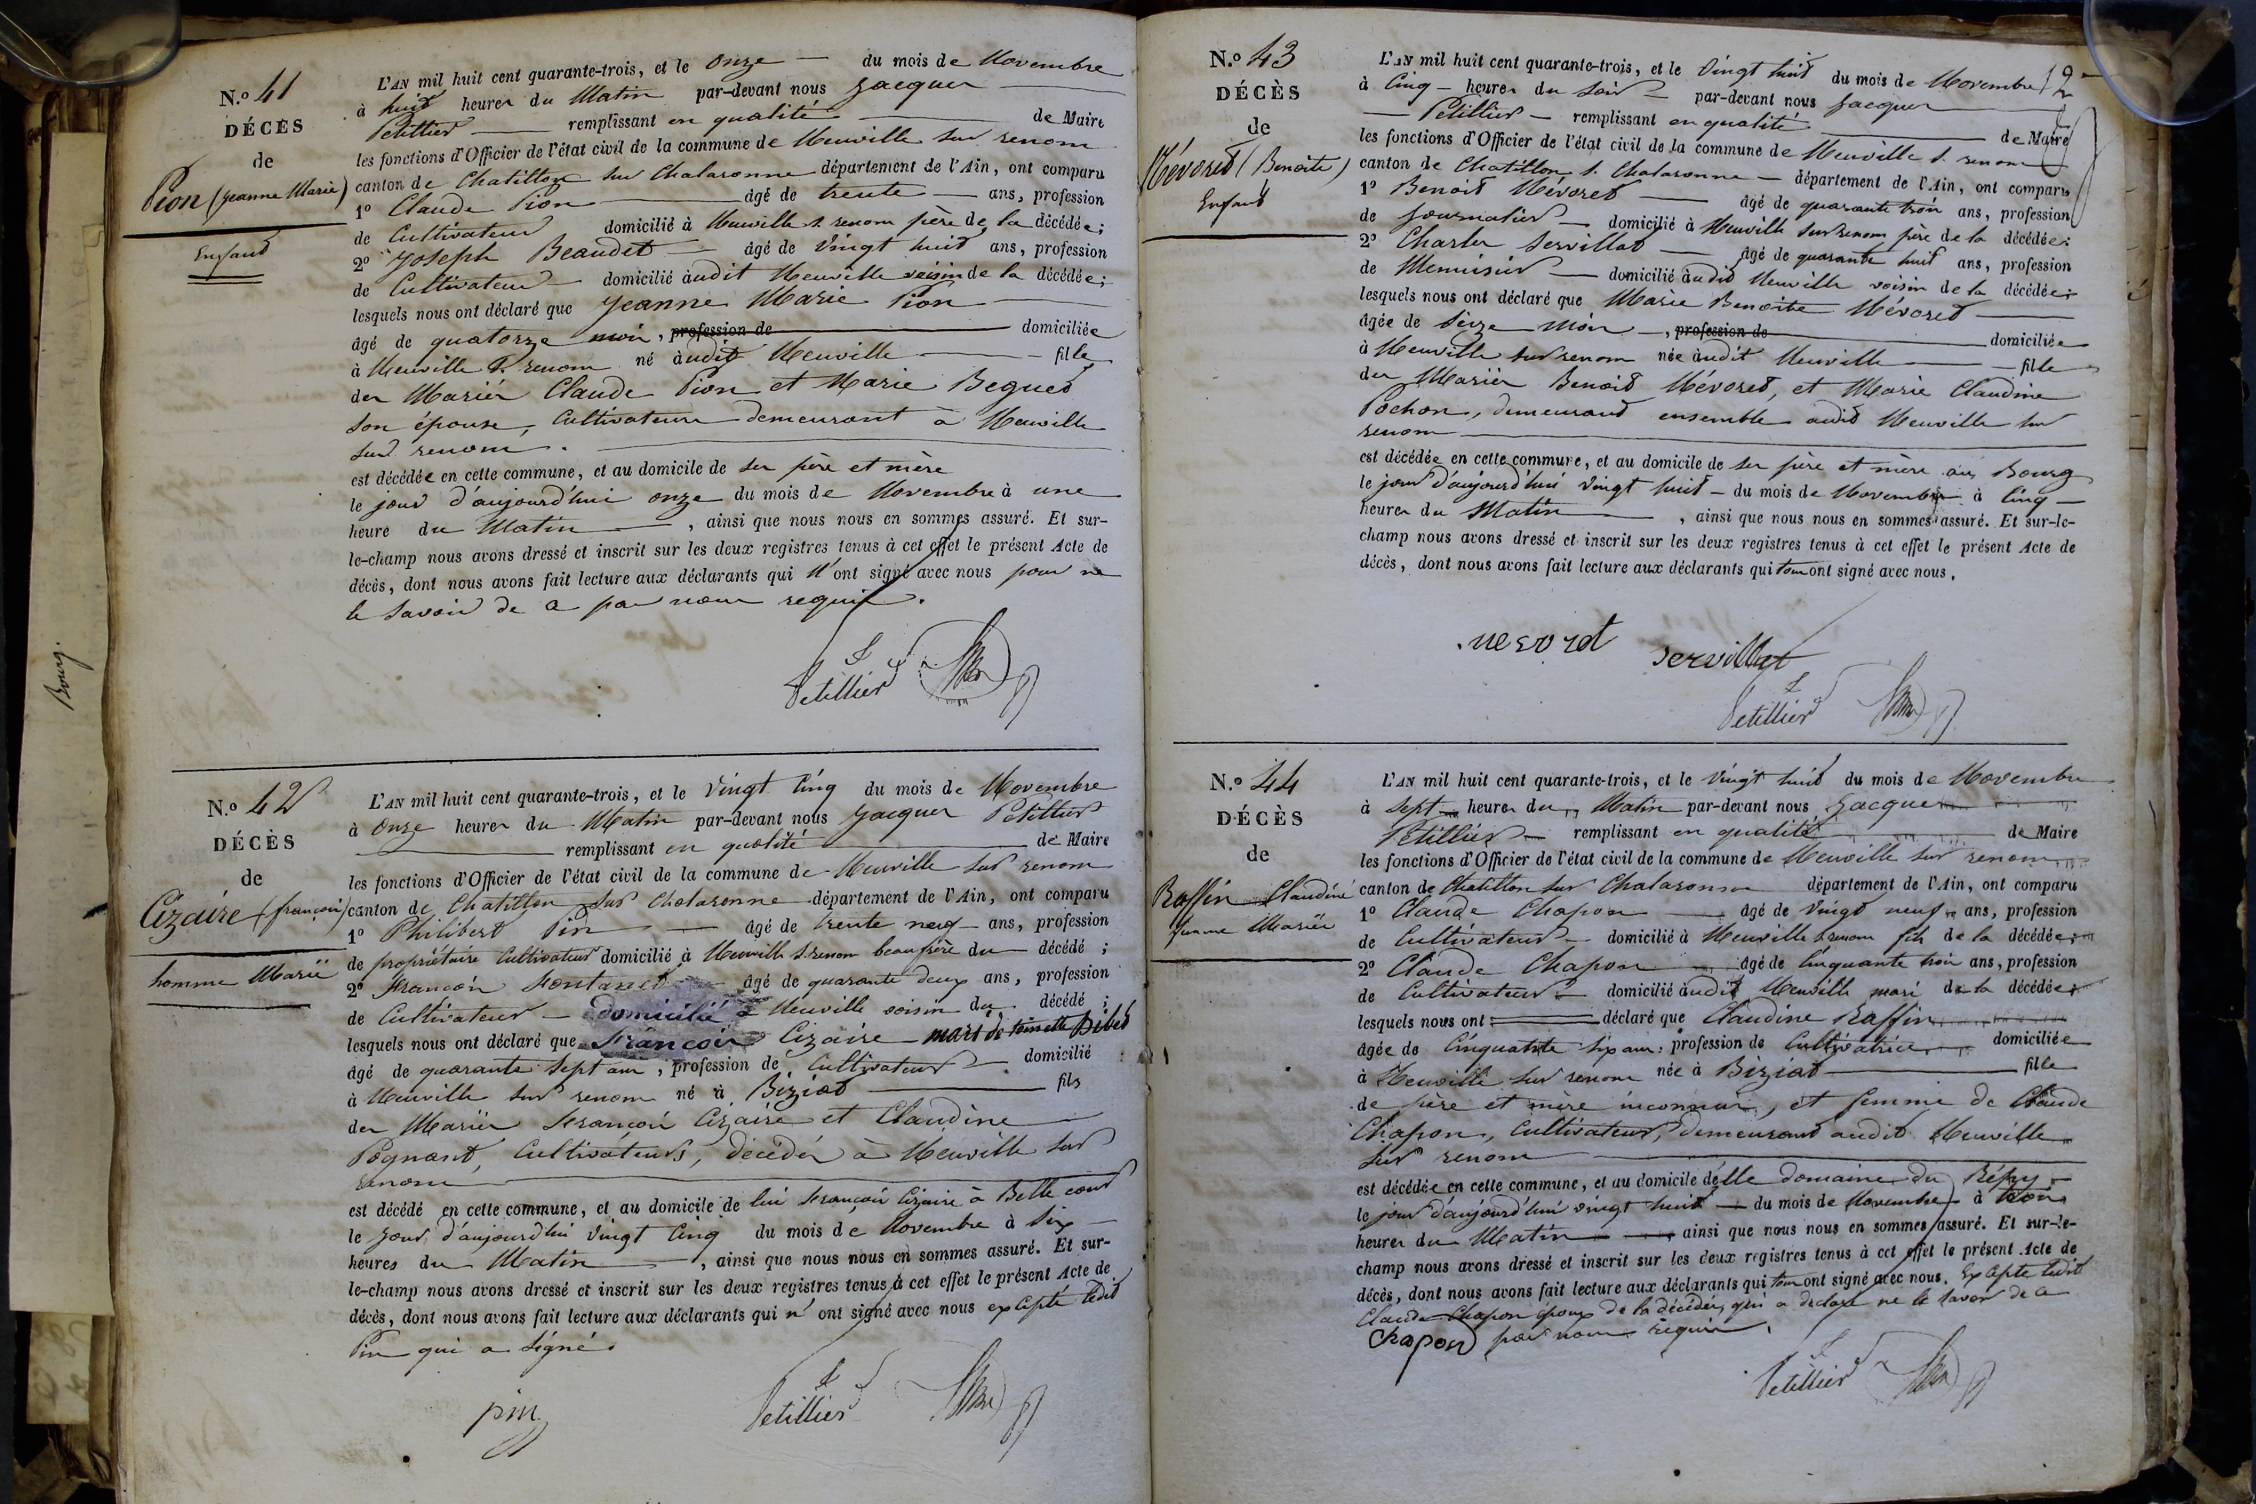 N.º 41
DÉCÈS
de
Pion (Jeanne Marie)
Enfant
L'AN mil huit cent quarante-trois, et le onze du mois de Novembre
à huit heures du Matin par-devant nous Jacques
Petillier remplissant en qualité de Maire
les fonctions d'Officier de l'état civil de la commune de Neuville sur renom
canton de Chatillon sur Chalaronne département de l'Ain, ont comparu
1º Claude Pion âgé de trente ans, profession
de Cultivateur domicilié à Neuville s. renom père de la décédée;
2º Joseph Beaudet âgé de vingt huit ans, profession
de Cultivateur domicilié audit Neuville voisin de la décédée;
lesquels nous ont déclaré que Jeanne Marie Pion
âgé de quatorze mois, profession de domiciliée
à Neuville s. renom né audit Neuville fille
des Mariés Claude Pion et Marie Beguet
son épouse, Cultivateurs demeurant à Neuville
sur renom.
est décédée en cette commune, et au domicile de ses père et mère
le jour d'aujourd'hui onze du mois de Novembre à une
heure du Matin, ainsi que nous nous en sommes assuré. Et sur-
le-champ nous avons dressé et inscrit sur les deux registres tenus à cet effet le présent Acte de
décès, dont nous avons fait lecture aux déclarants qui n'ont signé avec nous pour ne
le savoir de ce par nous requis.
J Petillier
N.º 42
DÉCÈS
de
Cizaire (françois)
homme Marié
L'AN mil huit cent quarante-trois, et le vingt cinq du mois de Novembre
à onze heures du Matin par-devant nous Jacques Petillier
remplissant en qualité de Maire
les fonctions d'Officier de l'état civil de la commune de Neuville sur renom
canton de Chatillon sur Chalaronne département de l'Ain, ont comparu
1º Philibert Pin âgé de trente neuf ans, profession
de propriétaire Cultivateur domicilié à Neuville s. renom beaufrère du décédé;
2º François Fontanet âgé de quarante deux ans, profession
de Cultivateur domicilié à Neuville voisin du décédé;
lesquels nous ont déclaré que François Cizaire mari de Pibet
âgé de quarante sept ans, profession de Cultivateur domicilié
à Neuville sur renom né à Biziat fils
des Mariés François Cizaire et Claudine
Pognant, Cultivateurs, décédés à Neuville sur
renom
est décédé en cette commune, et au domicile de lui François Cizaire à Belle cour
le jour d'aujourd'hui vingt cinq du mois de Novembre à six
heures du Matin, ainsi que nous nous en sommes assuré. Et sur-
le-champ nous avons dressé et inscrit sur les deux registres tenus à cet effet le présent Acte de
décès, dont nous avons fait lecture aux déclarants qui n'ont signé avec nous excepté ledit
Pin qui a signé
pin J Petillier
Bourg.
12
N.º 43
DÉCÈS
de
Névoret (Benoite)
Enfant
L'AN mil huit cent quarante-trois, et le vingt huit du mois de Novembre
à Cinq heures du soir par-devant nous Jacques
Petillier remplissant en qualité de Maire
les fonctions d'Officier de l'état civil de la commune de Neuville s. renom
canton de Chatillon s. Chalaronne département de l'Ain, ont comparu
1º Benoit Névoret âgé de quarante trois ans, profession
de journalier domicilié à Neuville sur renom père de la décédée;
2º Charles Servillat âgé de quarante huit ans, profession
de Menuisier domicilié audit Neuville voisin de la décédée;
lesquels nous ont déclaré que Marie Benoite Névoret
âgée de seize mois, profession de domiciliée
à Neuville sur renom née audit Neuville fille
des Mariés Benoit Névoret, et Marie Claudine
Pochon, demeurant ensemble audit Neuville sur
renom
est décédée en cette commune, et au domicile de ses père et mère au Bourg
le jour d'aujourd'hui vingt huit du mois de Novembre à Cinq
heures du Matin, ainsi que nous nous en sommes assuré. Et sur-le-
champ nous avons dressé et inscrit sur les deux registres tenus à cet effet le présent Acte de
décès, dont nous avons fait lecture aux déclarants qui tous ont signé avec nous.
nevoret servillat
J Petillier
N.º 44
DÉCÈS
de
Raffin Claudine
femme Mariée
L'AN mil huit cent quarante-trois, et le vingt huit du mois de Novembre
à sept heures du Matin par-devant nous Jacques
Petillier remplissant en qualité de Maire
les fonctions d'Officier de l'état civil de la commune de Neuville sur renom
canton de Chatillon sur Chalaronne département de l'Ain, ont comparu
1º Claude Chapon âgé de vingt neuf ans, profession
de Cultivateur domicilié à Neuville s. renom fils de la décédée;
2º Claude Chapon âgé de Cinquante trois ans, profession
de Cultivateur domicilié audit Neuville mari de la décédée;
lesquels nous ont déclaré que Claudine Raffin
âgée de Cinquante six ans, profession de Cultivatrice domiciliée
à Neuville sur renom née à Biziat fille
de père et mère inconnus, et femme de Claude
Chapon, Cultivateur, demeurant audit Neuville
sur renom
est décédée en cette commune, et au domicile d'elle domaine du
le jour d'aujourd'hui vingt huit du mois de Novembre à trois
heures du Matin ainsi que nous nous en sommes assuré. Et sur-le-
champ nous avons dressé et inscrit sur les deux registres tenus à cet effet le présent Acte de
décès, dont nous avons fait lecture aux déclarants qui tous ont signé avec nous. Excepté ledit
Claude Chapon époux de la décédée, qui a déclaré ne le savoir de ce
chapon par nous requis.
J Petillier